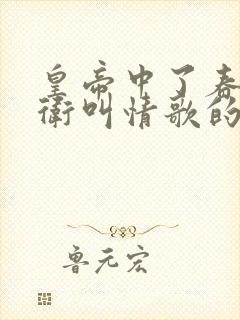 皇帝中了春
衛叫情歌的
鲁元宏